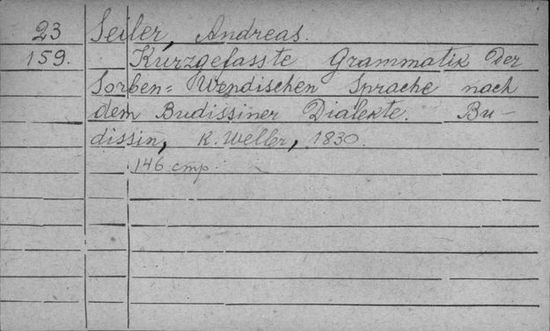 23 Seiler, Andreas.
159. Kurzgefasste Grammatik der
Sorben= Wendischen Sprache nach
dem Budissiner Dialekte. Bu-
dissin, K. Weller, 1830.
146 стр.